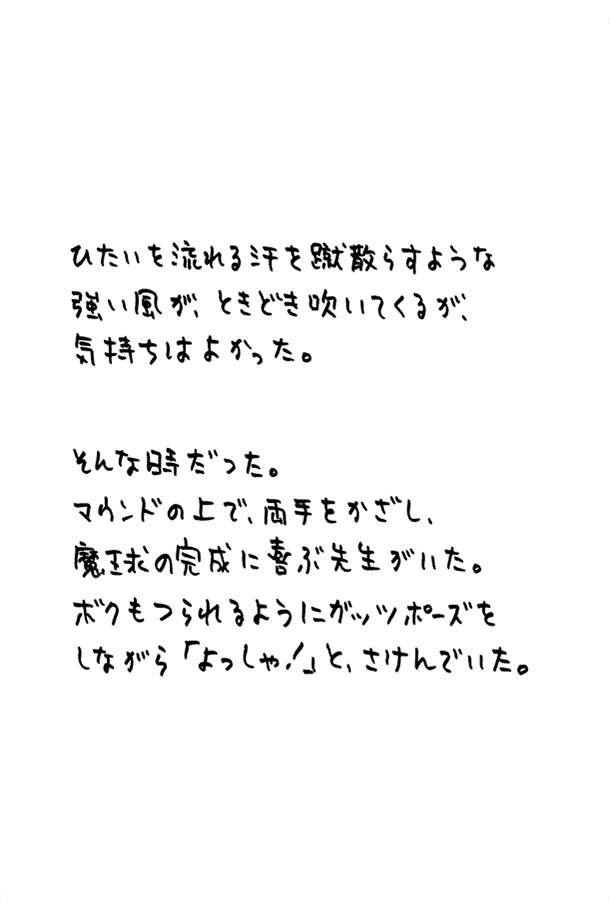 ひたいを流れる汗を蹴散らすような
強い風が、ときどき吹いてくるが、
気持ちはよかった。
そんな時だった。
マウンドの上で、両手をかざし、
魔球の完成に喜ぶ先生がいた。
ボクもつられるようにガッツポーズを
しながら「よっしゃ!」と、さけんでいた。